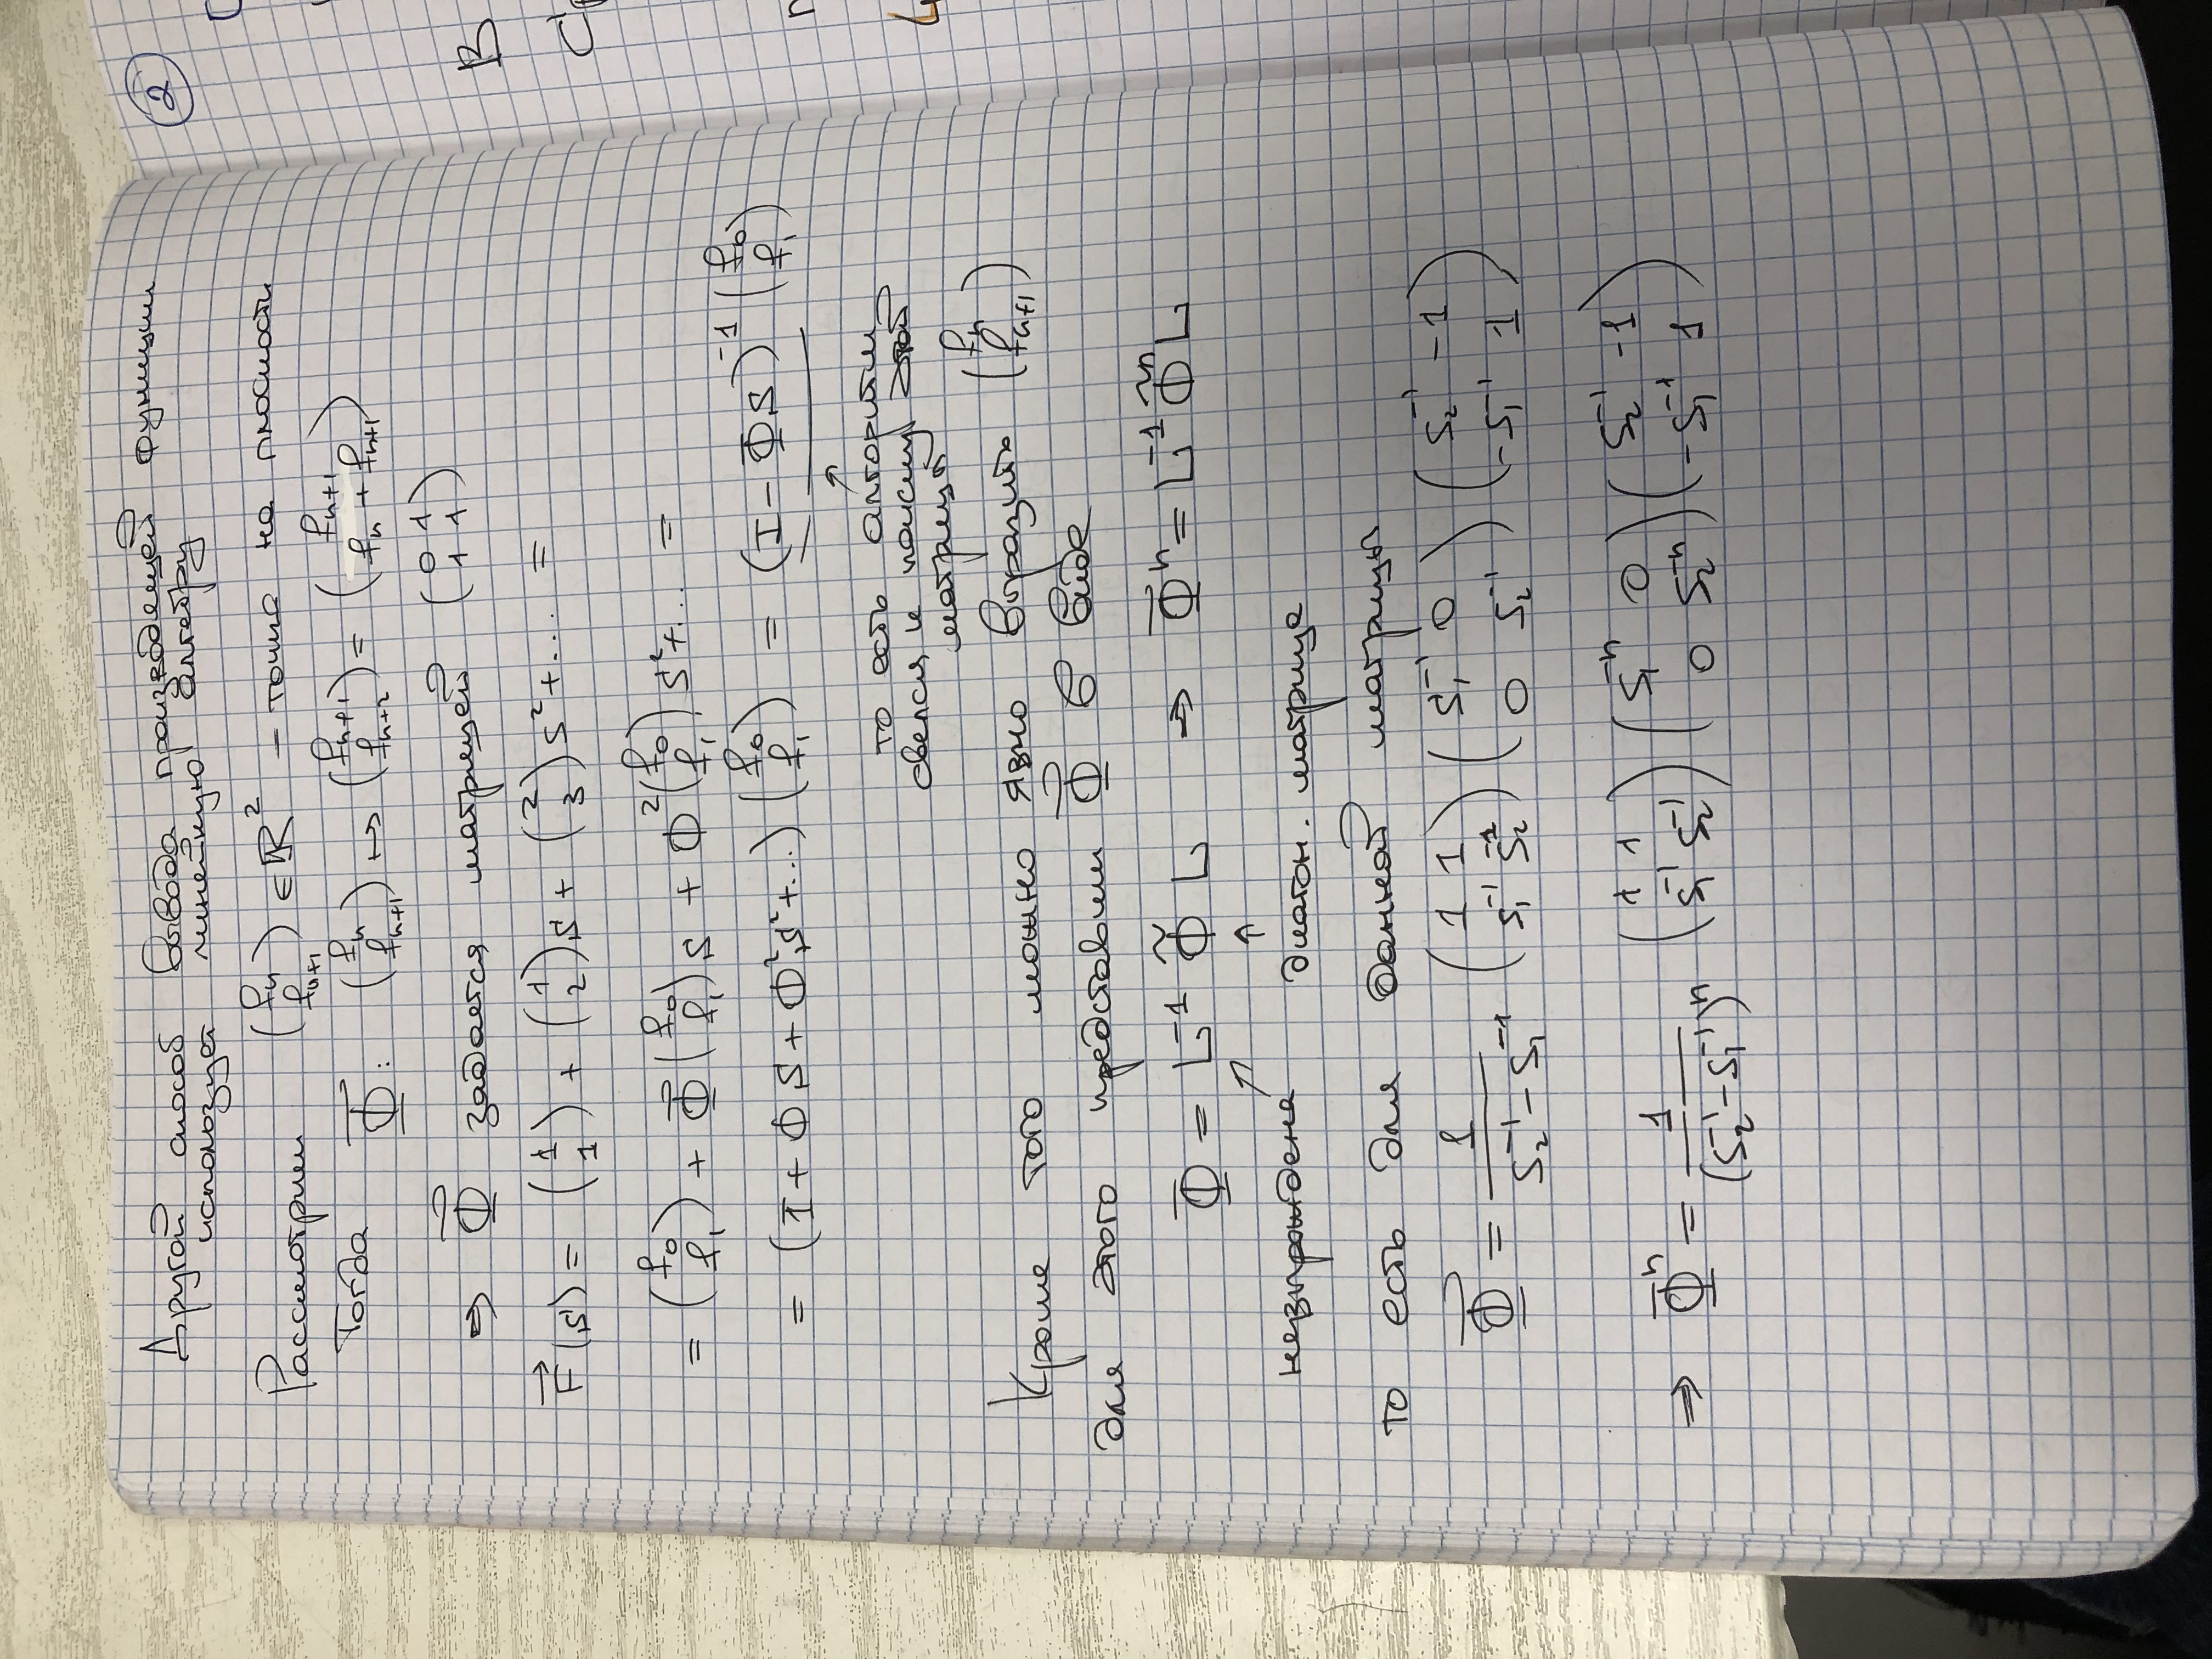 Другой способ вывода производящей функции
использует линейную алгебру
Рассмотрим (fₙ fₙ₊₁) ∈ ℝ² – точка на плоскости
Тогда Φ: (fₙ fₙ₊₁) ↦ (fₙ₊₁ fₙ₊₂) = (fₙ₊₁ fₙ + fₙ₊₁)
⇒ Φ задается матрицей (0 1 1 1)
F⃗(s) = (1 1) + (1 2)s + (2 3)s² + ... =
= (f₀ f₁) + Φ(f₀ f₁)s + Φ²(f₀ f₁)s² + ... =
= (I + Φs + Φ²s² + ...)(f₀ f₁) = (I – Φs)⁻¹(f₀ f₁)
то есть алгоритм
свелся к поиску этой
матрицы
Кроме того можно явно выразить (fₙ fₙ₊₁)
для этого представим Φ в виде
Φ = L⁻¹ Φ̃ L ⇒ Φⁿ = L⁻¹ Φ̃ⁿ L
невырождена диагон. матрица
то есть для данной матрицы
Φ = 1/(s₂⁻¹ – s₁⁻¹) (1 1 s₁⁻¹ s₂⁻¹)(s₁⁻¹ 0 0 s₂⁻¹)(s₂⁻¹ –1 –s₁⁻¹ 1)
⇒ Φⁿ = 1/(s₂⁻¹ – s₁⁻¹)ⁿ (1 1 s₁⁻¹ s₂⁻¹)(s₁⁻ⁿ 0 0 s₂⁻ⁿ)(s₂⁻¹ –1 –s₁⁻¹ 1)
2
В